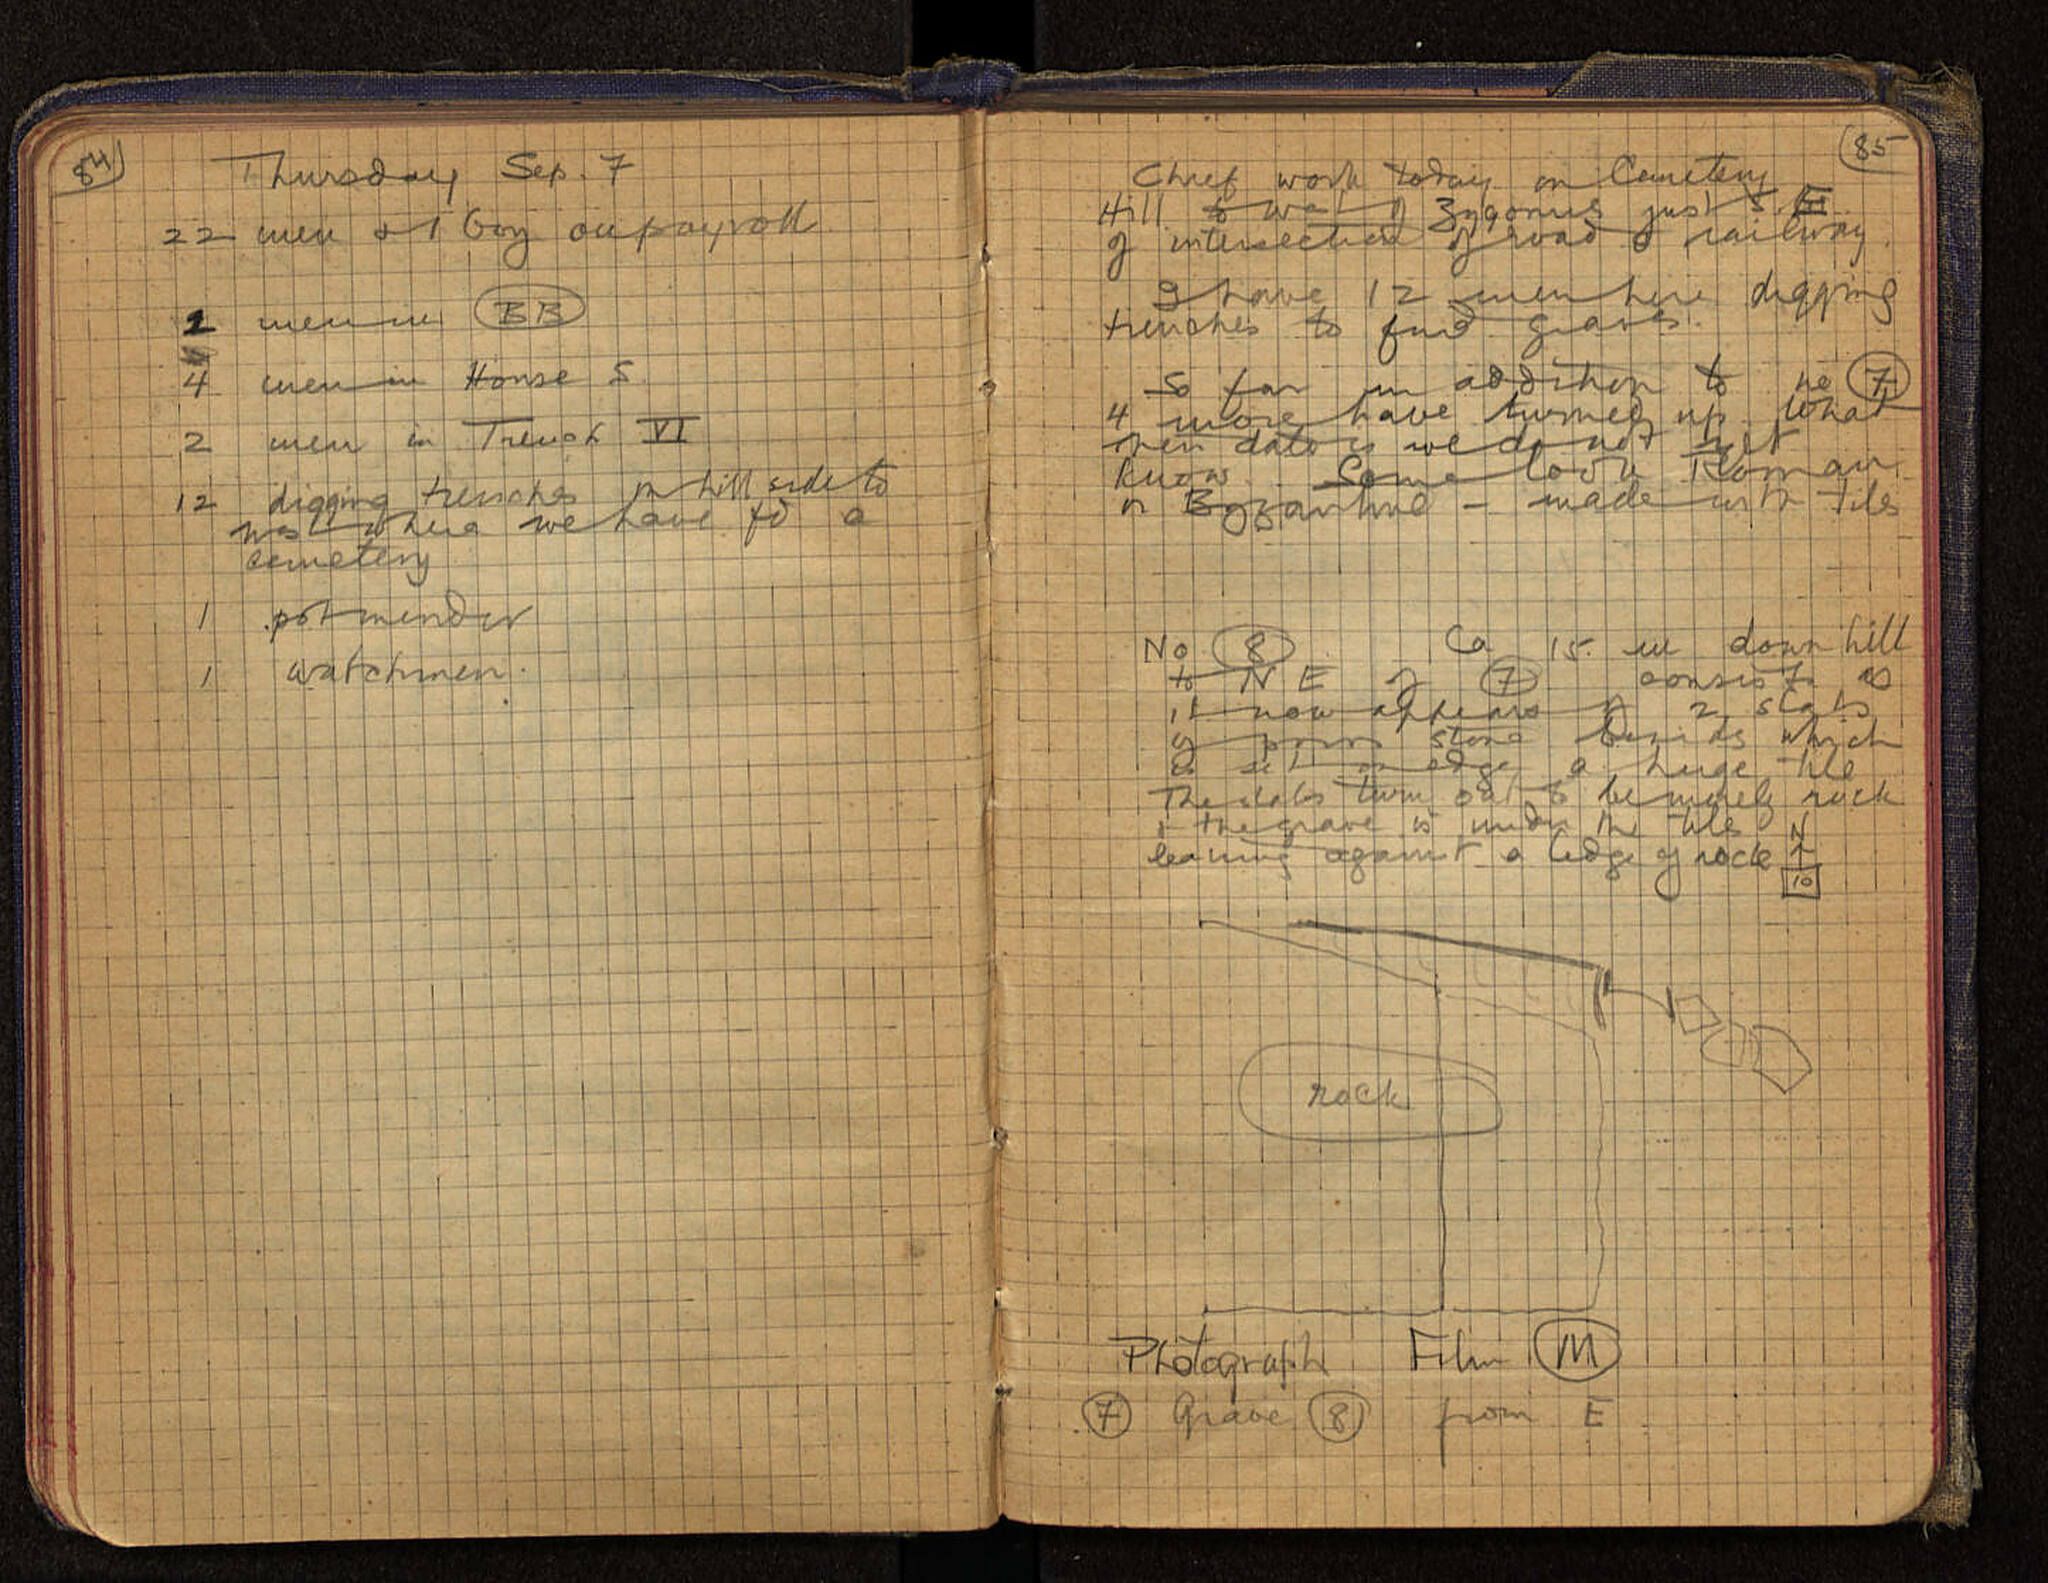 84
Thursday Sep. 7
22 men & 1 boy on payroll
2 men in BB
4 men in House S
2 men in Trench VI
12 digging trenches on hill side to
west where we have fd a
cemetery
1 pot mender
1 watchmen.
85
Chief work today on Cemetery
Hill to west of Zygouries just S.
of intersection of road & railway.
I have 12 men here digging
trenches to find graves.
So far in addition to no 7
4 more have turned up. What
their date is we do not yet
know. Some look Roman
or Byzantine - made with tiles
No 8 Ca 15 m down hill
to N E of 7 consists as
it now appears of 2 slabs
of poros stone beside which
is set on edge a huge tile
The slabs turn out to be merely rock
& the grave is under the tiles
leaning against a ledge of rock
N
10
rock
Photograph Film M
7 Grave 8 from E